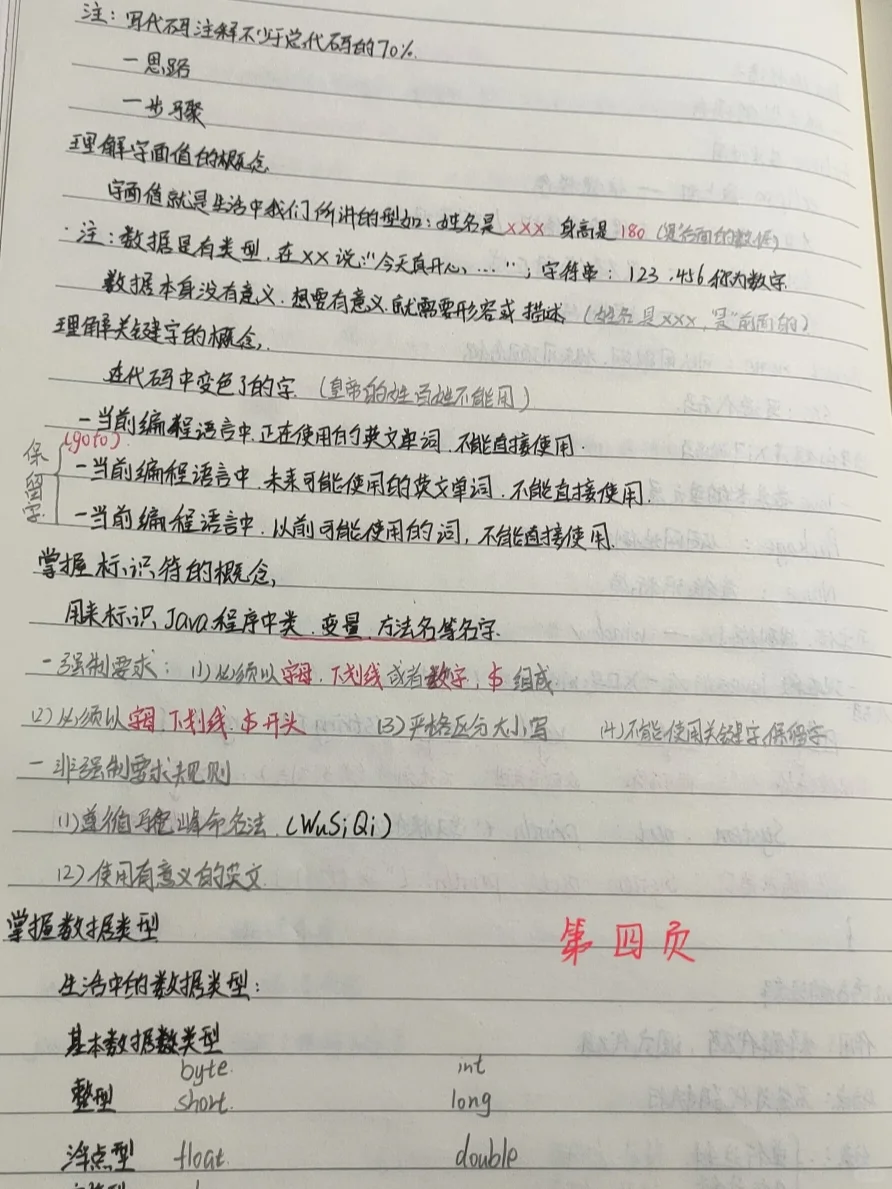 注：写代码注释不少于总代码的70%.
一思路
一步骤
理解字面值的概念
字面值就是生活中我们所讲的型如：姓名是xxx 身高是180 (是后面的数值)
·注：数据是有类型，在xx说："今天真开心，..."；字符串：123，456称为数字
数据本身没有意义，想要有意义就需要形容或描述 (姓名是xxx，"是"前面的)
理解关键字的概念，
在代码中变色了的字.（皇帝的姓百姓不能用）
-当前编程语言中，正在使用的英文单词，不能直接使用.
(goto)
保留字
-当前编程语言中，未来可能使用的英文单词，不能直接使用.
-当前编程语言中，以前可能使用的词，不能直接使用.
掌握标识符的概念，
用来标识，Java程序中类，变量，方法名等名字.
-强制要求：(1)必须以字母，下划线或者数字，$组成
(2)必须以字母，下划线，$开头 (3)严格区分大小写 (4)不能使用关键字，保留字
-非强制要求规则
(1)遵循驼峰命名法.(WuSiQi)
(2)使用有意义的英文.
掌握数据类型
第四页
生活中的数据类型：
基本数据数类型
整型 byte. int
short. long
浮点型 float. double